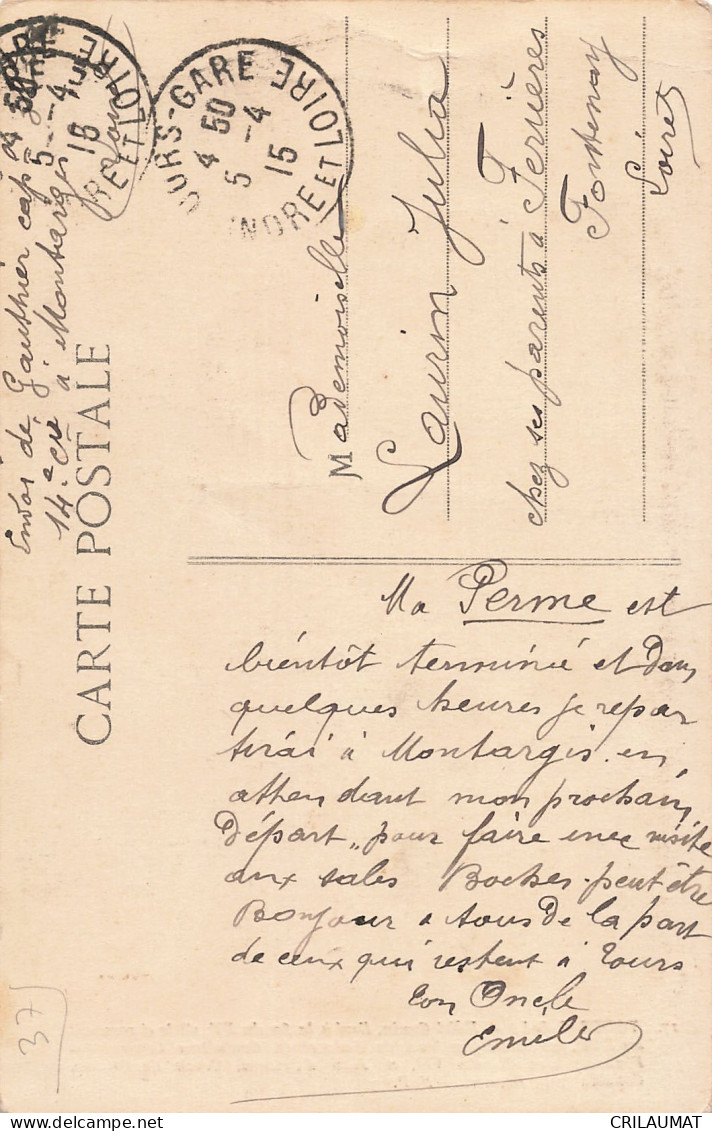 Envoi de Gauthier cap
14.e cie à Montargis
CARTE POSTALE
TOURS-GARE
4 50
5 -4
15
INDRE ET LOIRE
50
5 -4
15
RE ET LOIRE
Mademoiselle
Laurin Julia
chez ses parents à Ferrières
Fontenay
Loiret
Ma Perme est
bientôt terminé et Dans
quelques heures je repar
tirai à Montargis en
atten dant mon prochain
Départ „ pour faire une visite
aux sales Boches. peut être
Bonjour a tous De la part
de ceux qui restent à Tours
Ton Oncle
Emile
37
CRILAUMAT